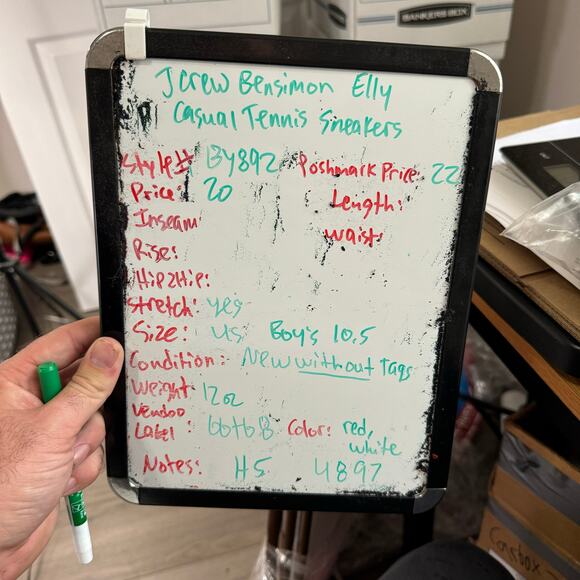 BANKERS BOX
Jcrew Bensimon Elly
Casual Tennis Sneakers
Style# BY892 Poshmark Price 22
Price: 20 Length:
Inseam
Waist:
Rise:
Hip2Hip:
Stretch: yes
Size: US Boy's 10.5
Condition: New without Tags
Weight 12oz
Vendoo
Label: Color: red,
white
Notes: H5 4897